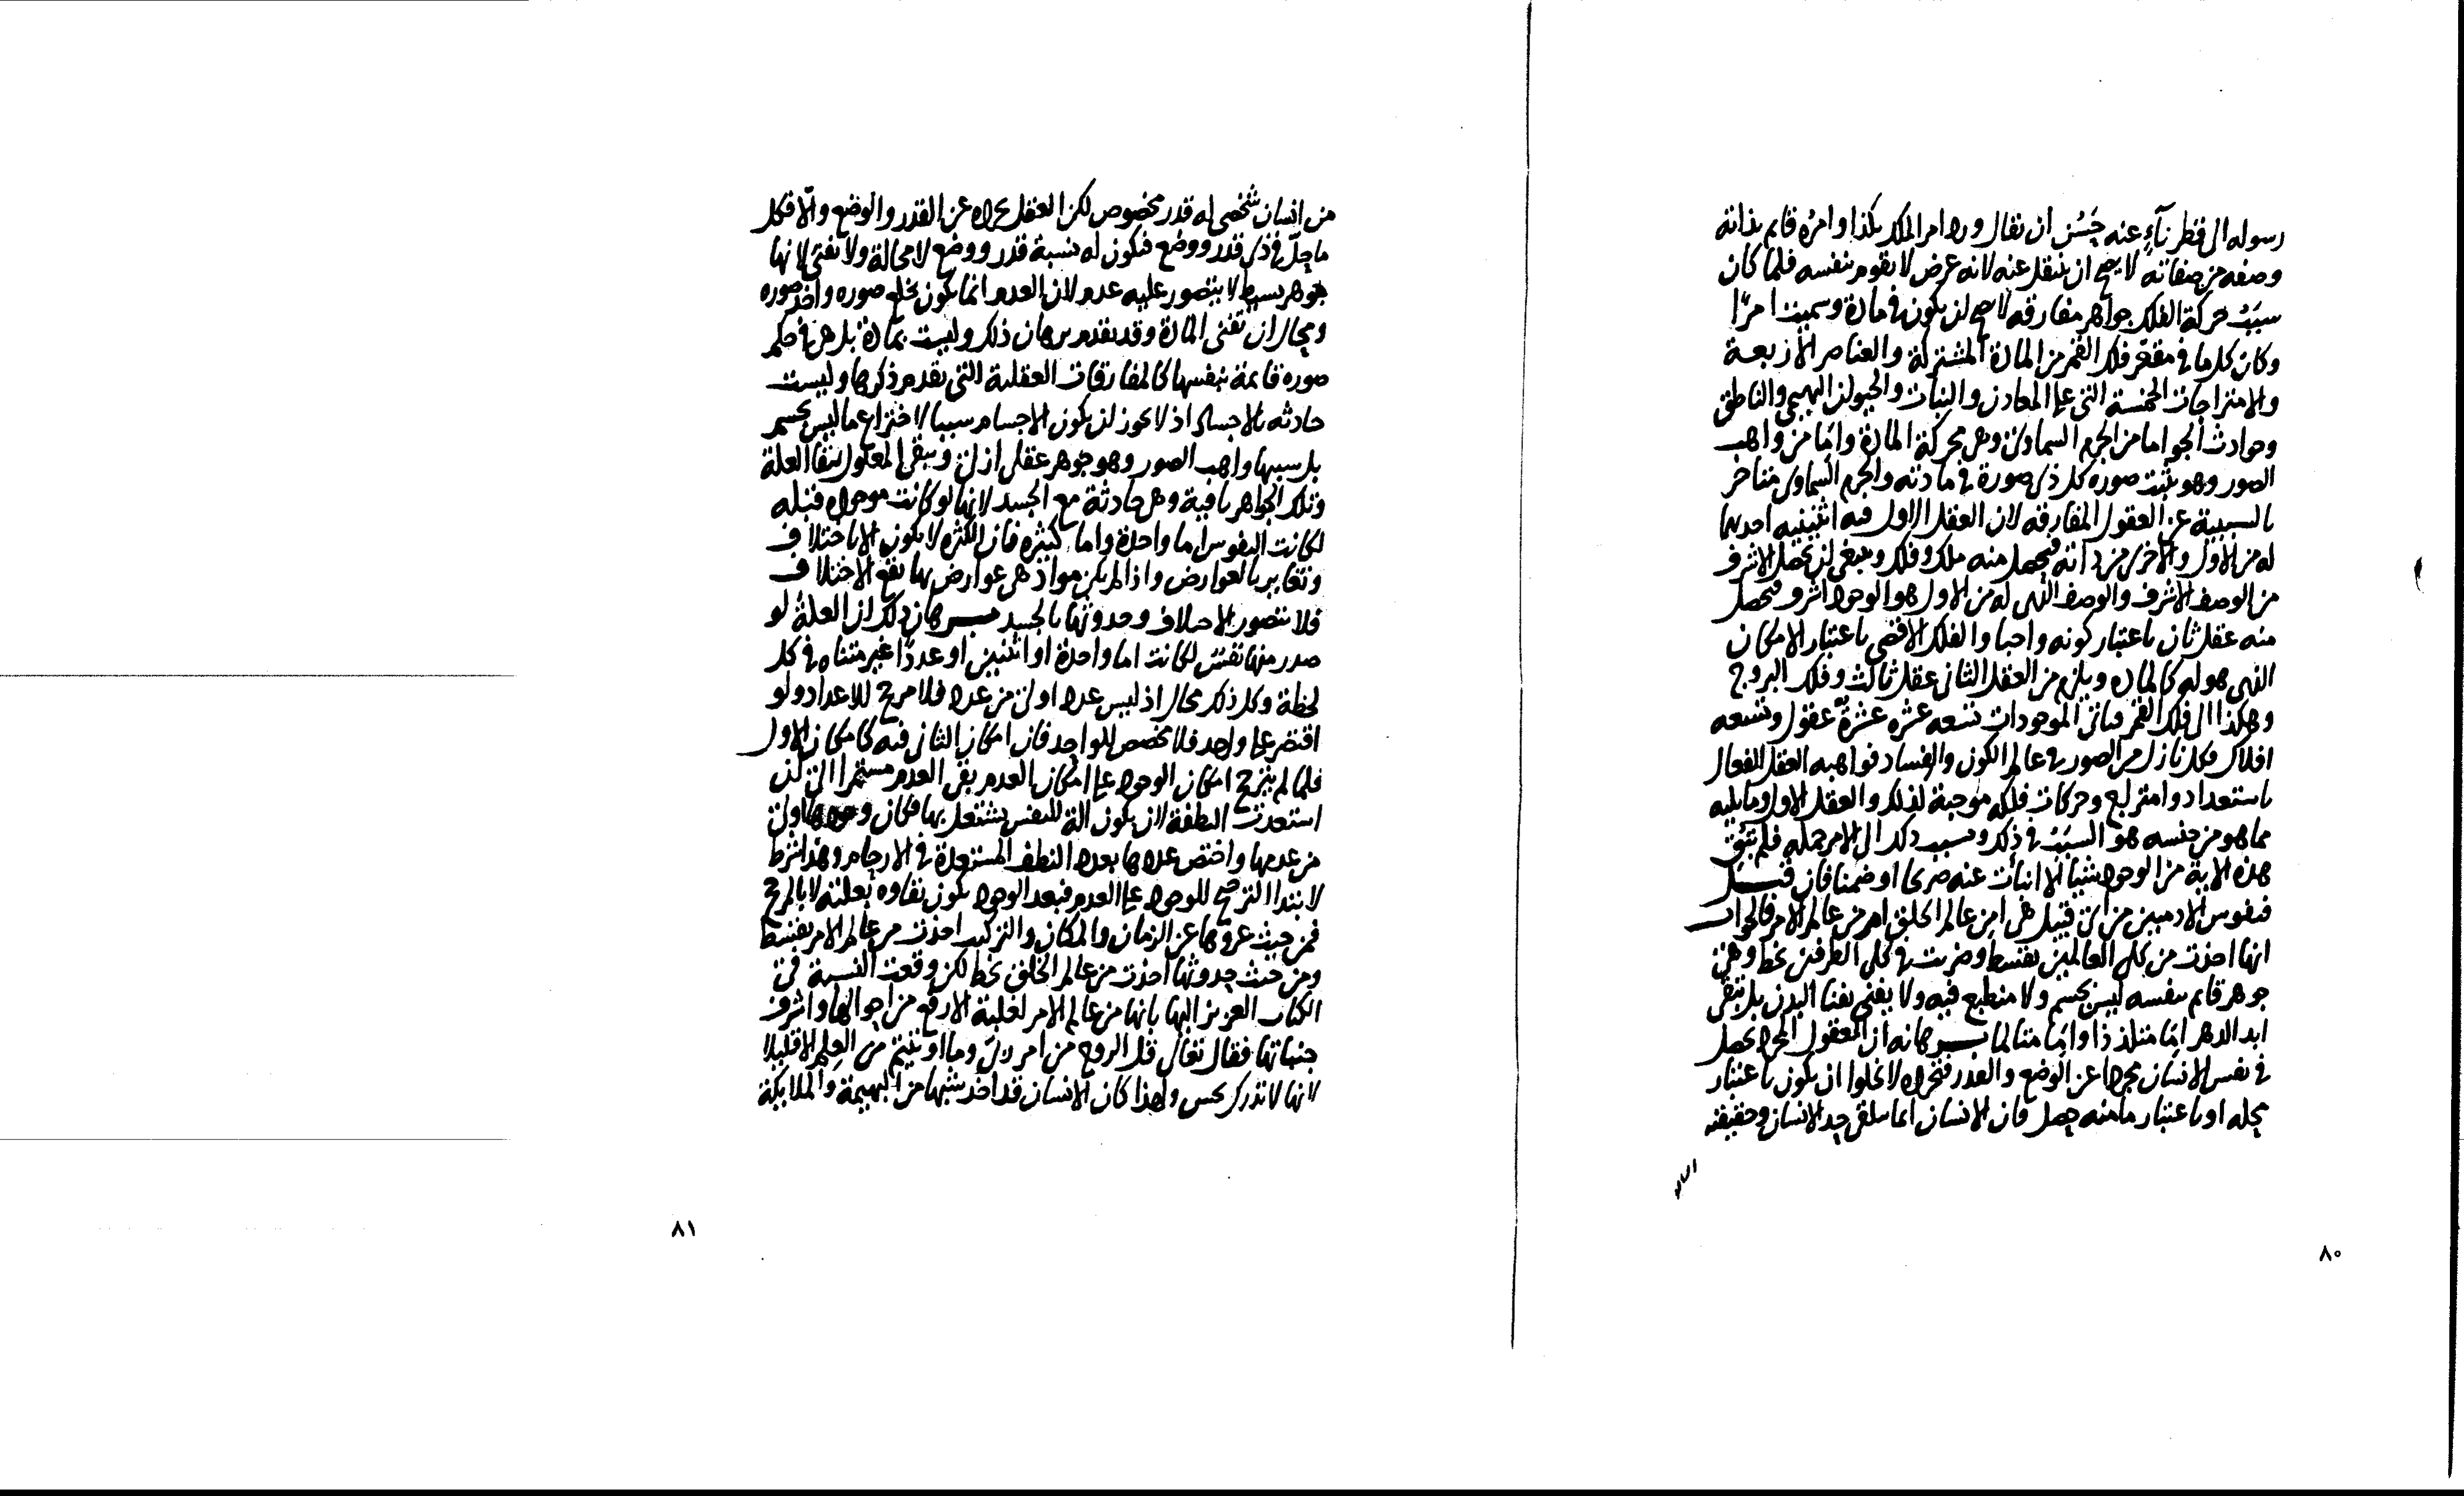 رسوله الى قطر ناءٍ عنه حَسُن ان يقال ورد امر الملك بكذا وامره قايم بذاته
وصفه من صفاته لا يصح ان ينتقل عنه لانه عرض لا يقوم بنفسه فلما كان
سبب حركة الفلك جواهر مفارقه لا يصح ان يكون في مادة وسميت امرًا
وكان كل ما في مقعّر فلك القمر من المادة المشتركة والعناصر الاربعة
والامتزاجات الخمسة التي هي المعادن والنبات والحيوان البهيمي والناطق
وحوادث الجو اما من الجرم السماوي وهي محركة المادة واما من واهب
الصور وهو يثبت صوره كل ذي صورة في مادته والجرم السماوي متاخر
بالسببية عن العقول المفارقه لان العقل الاول فيه اثنينيه احديهما
له من الاول والاخرى من ذاته فيحصل منه ملك وفلك وينبغي ان يحصل الاشرف
من الوصف الاشرف والوصف الذي له من الاول هو الوجود اشرف فيحصل
منه عقل ثان باعتبار كونه واجبا والفلك الاقصى باعتبار الامكان
الذي هو له كالماده ويلزم من العقل الثاني عقل ثالث وفلك البروج
وهكذا الى فلك القمر فباقي الموجودات تسعه عشره عشرة عقول وتسعه
افلاك فكل نازل من الصور في عالم الكون والفساد فواهبه العقل الفعال
باستعداد وامتزاج وحركات فلكيه موجبة لذلك والعقل الاول وما يليه
مما هو من جنسه هو السبب في ذلك ومسبب ذلك الى الامر جمله فلم تبق
هذه الاية من الوجود شيئا الا انبات عنه صريحا او ضمنا فان قيل
فنفوس الادميين من اي قبيل هي امن عالم الخلق ام من عالم الامر فالجواب
انها اخذت من كل العالمين بقسط وضربت في كلي الطرفين بخط وهي
جوهر قايم بنفسه ليس بجسم ولا منطبع فيه ولا يفنى بفنا البدن بل يبقى
ابد الدهر اما متلذذا واما متالما برهانه ان المعقول المجرد يحصل
في نفس الانسان مجردا عن الوضع والقدر فتجرده لا يخلوا ان يكون باعتبار
محله او باعتبار ما منه حصل فان الانسان انما يتلقى حد الانسان وحقيقته
٨٠
من انسان شخصي له قدر مخصوص لكن العقل يجرده عن القدر والوضع والّا فكل
ما حلّ في ذي قدر ووضع فيكون له نسبة قدر ووضع لا محالة ولا تفنى لانها
جوهر بسيط لا يتصور عليه عدم لان العدم انما يكون بخلع صوره واخذ صوره
ومحال ان تفنى المادة وقد تقدم برهان ذلك وليست بمادة بل هي في حكم
صوره قايمة بنفسها كالمفارقات العقلية التي تقدم ذكرها وليست
حادثه بالاجساد اذ لا يجوز ان يكون الاجسام سببا لاختراع ما ليس بجسم
بل سببها واهب الصور وهو جوهر عقلي ازلي ويبقى المعلول ببقا العلة
وتلك الجواهر باقية وهي حادثة مع الجسد لانها لو كانت موجوده قبله
لكانت النفوس اما واحدة واما كثيره فان الكثره لا يكون الا باختلاف
وتغاير بالعوارض واذا لم يكن مواد هي عوارض بها يقع الاختلاف
فلا يتصور الاختلاف وحدوثها بالجسد برهان ذلك ان العلة لو
صدر منها نفس لكانت اما واحدة او اثنين او عددًا غير متناه في كل
لحظة وكل ذلك محال اذ ليس عدد اولى من عدد فلا مرجح للاعداد ولو
اقتصر على واحد فلا مخصص للواحد فان امكان الثاني فيه كامكان الاول
فلما لم يترجح امكان الوجود على امكان العدم بقي العدم مستمرا الى ان
استعدت النطفة لان يكون الة للنفس يشتغل بها فكان وجودها اولى
من عدمها واختص عددها بعدد النطف المستعدة في الارحام وهذا شرط
لابتدا الترجح للوجود على العدم فبعد الوجود يكون بقاوه بعلته لا بالمرجح
فمن حيث عروها عن الزمان والمكان والتركيب اخذت من عالم الامر بقسط
ومن حيث حدوثها اخذت من عالم الخلق بخط لكن وقعت النسبة في
الكتاب العزيز اليها بانها من عالم الامر لغلبة الارفع من احوالها واشرف
جنباتها فقال تعالى قل الروح من امر ربى وما اوتيتم من العِلم الا قليلا
لانها لا تدرك بحس ولهذا كان الانسان قد اخذ شبها من البهيمة والملايكة
٨١